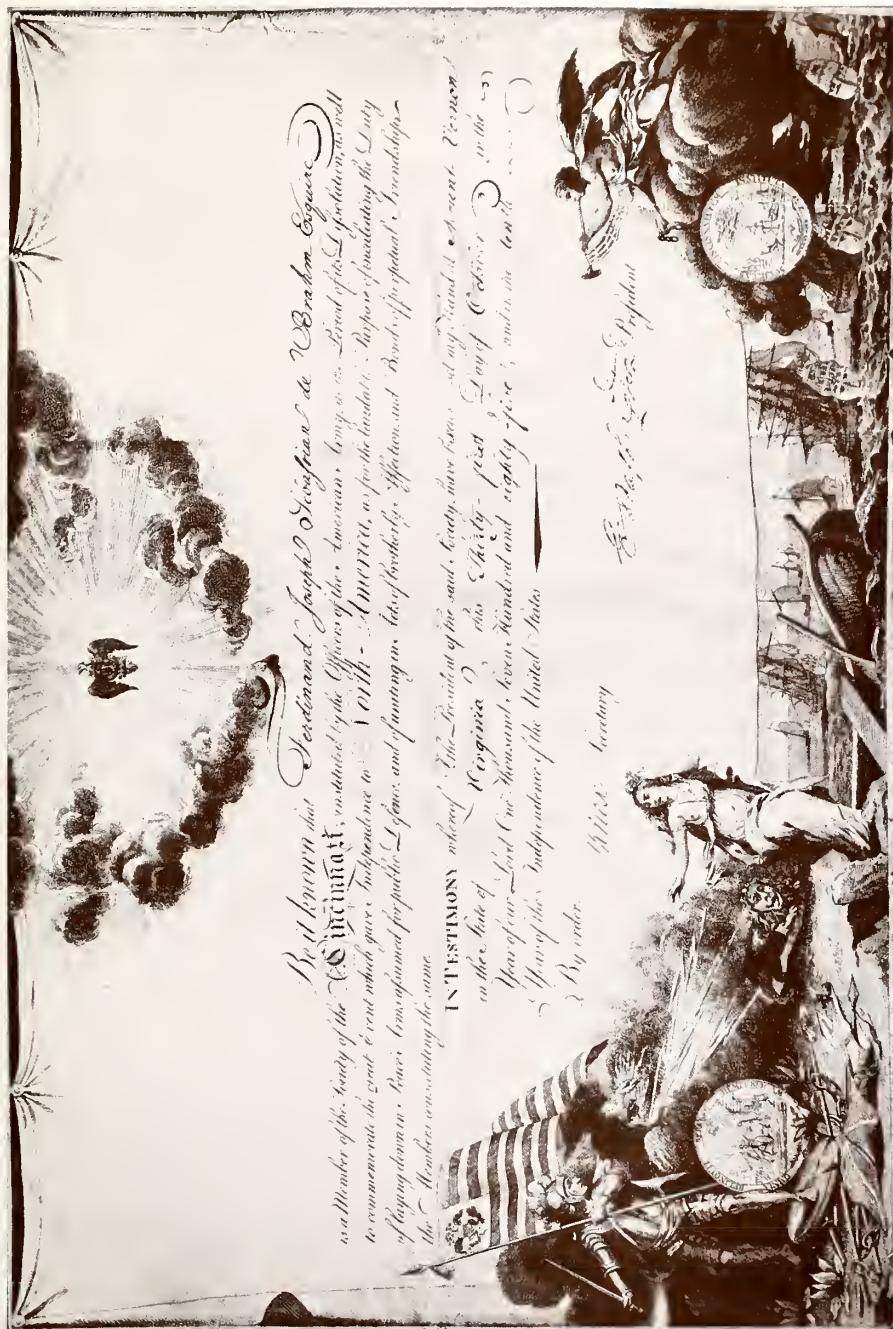 Be it known that Ferdinand Joseph Sebastian de Brahm Esquire
is a Member of the Society of the Cincinnati, instituted by the Officers of the American Army, at the Period of its Dissolution, as well
to commemorate the great Event which gave Independence to North-America, as for the laudable Purpose of inculcating the Duty
of laying down in Peace Arms assumed for public Defence, and of uniting in Acts of brotherly Affection, and Bonds of perpetual Friendship
the Members constituting the same.
IN TESTIMONY whereof I, the President of the said Society, have hereunto set my Hand at Mount Vernon
in the State of Virginia this Thirty-first Day of October in the
Year of our Lord One Thousand Seven Hundred and eighty five, and in the tenth
Year of the Independence of the United States
By order.
Secretary
President